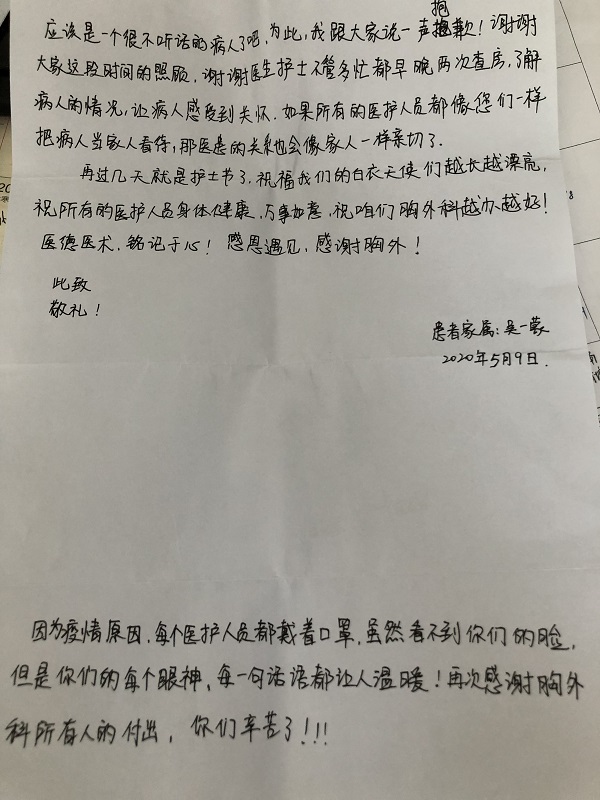 应该是一个很不听话的病人了吧，为此，我跟大家说一声抱歉！谢谢
大家这段时间的照顾，谢谢医生护士不管多忙都早晚两次查房，了解
病人的情况，让病人感受到关怀。如果所有的医护人员都像您们一样
把病人当家人看待，那医患的关系也会像家人一样亲切了。
再过几天就是护士节了，祝福我们的白衣天使们越长越漂亮，
祝所有的医护人员身体健康，万事如意，祝咱们胸外科越办越好！
医德医术，铭记于心！感恩遇见，感谢胸外！
此致
敬礼！
患者家属：吴一蒙
2020年5月9日.
因为疫情原因，每个医护人员都戴着口罩，虽然看不到你们的脸，
但是你们的每个眼神，每一句话语都让人温暖！再次感谢胸外
科所有人的付出，你们辛苦了!!!